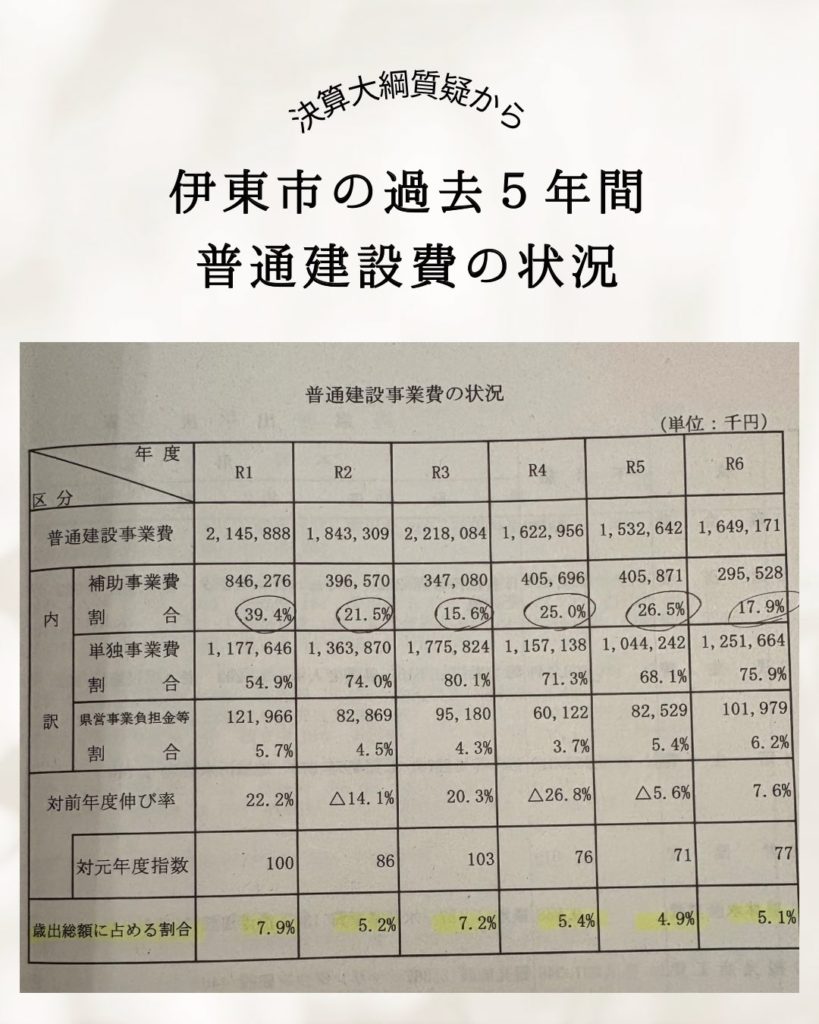 決算大綱質疑から
伊東市の過去５年間
普通建設費の状況
普通建設事業費の状況
(単位：千円)
年度 R1 R2 R3 R4 R5 R6
区分
普通建設事業費 2,145,888 1,843,309 2,218,084 1,622,956 1,532,642 1,649,171
内訳
補助事業費 846,276 396,570 347,080 405,696 405,871 295,528
割合 39.4% 21.5% 15.6% 25.0% 26.5% 17.9%
単独事業費 1,177,646 1,363,870 1,775,824 1,157,138 1,044,242 1,251,664
割合 54.9% 74.0% 80.1% 71.3% 68.1% 75.9%
県営事業負担金等 121,966 82,869 95,180 60,122 82,529 101,979
割合 5.7% 4.5% 4.3% 3.7% 5.4% 6.2%
対前年度伸び率 22.2% △14.1% 20.3% △26.8% △5.6% 7.6%
対元年度指数 100 86 103 76 71 77
歳出総額に占める割合 7.9% 5.2% 7.2% 5.4% 4.9% 5.1%